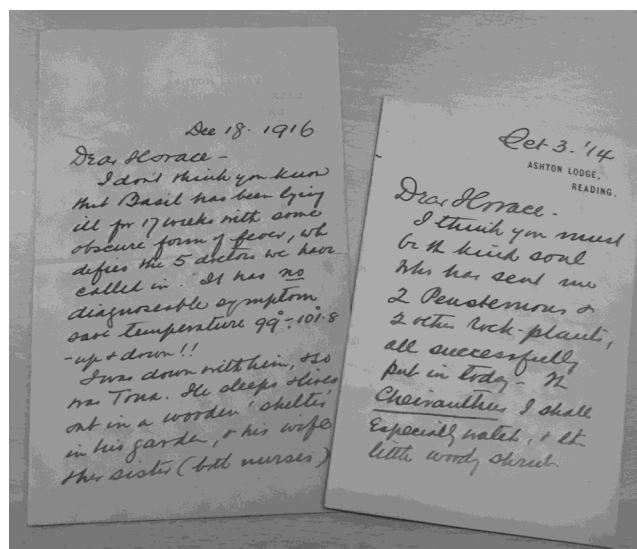 Dec 18. 1916
Dear Horace -
I don't think you know
that Basil has been lying
ill for 17 weeks with some
obscure form of fever, wh
defies the 5 doctors we have
called in. It has no
diagnoseable symptom
save temperature 99°-101.8
- up & down!!
I was down with him, & so
was Tona. He sleeps & lives
out in a wooden 'shelter'
in his garden, & his wife
& her sister (both nurses)
Oct. 3. '14
ASHTON LODGE,
READING.
Dear Horace.
I think you must
be the kind soul
who has sent me
2 Penstemons &
2 other rock-plants,
all successfully
put in today - The
Cheiranthus I shall
Especially watch, &
little woody shrub